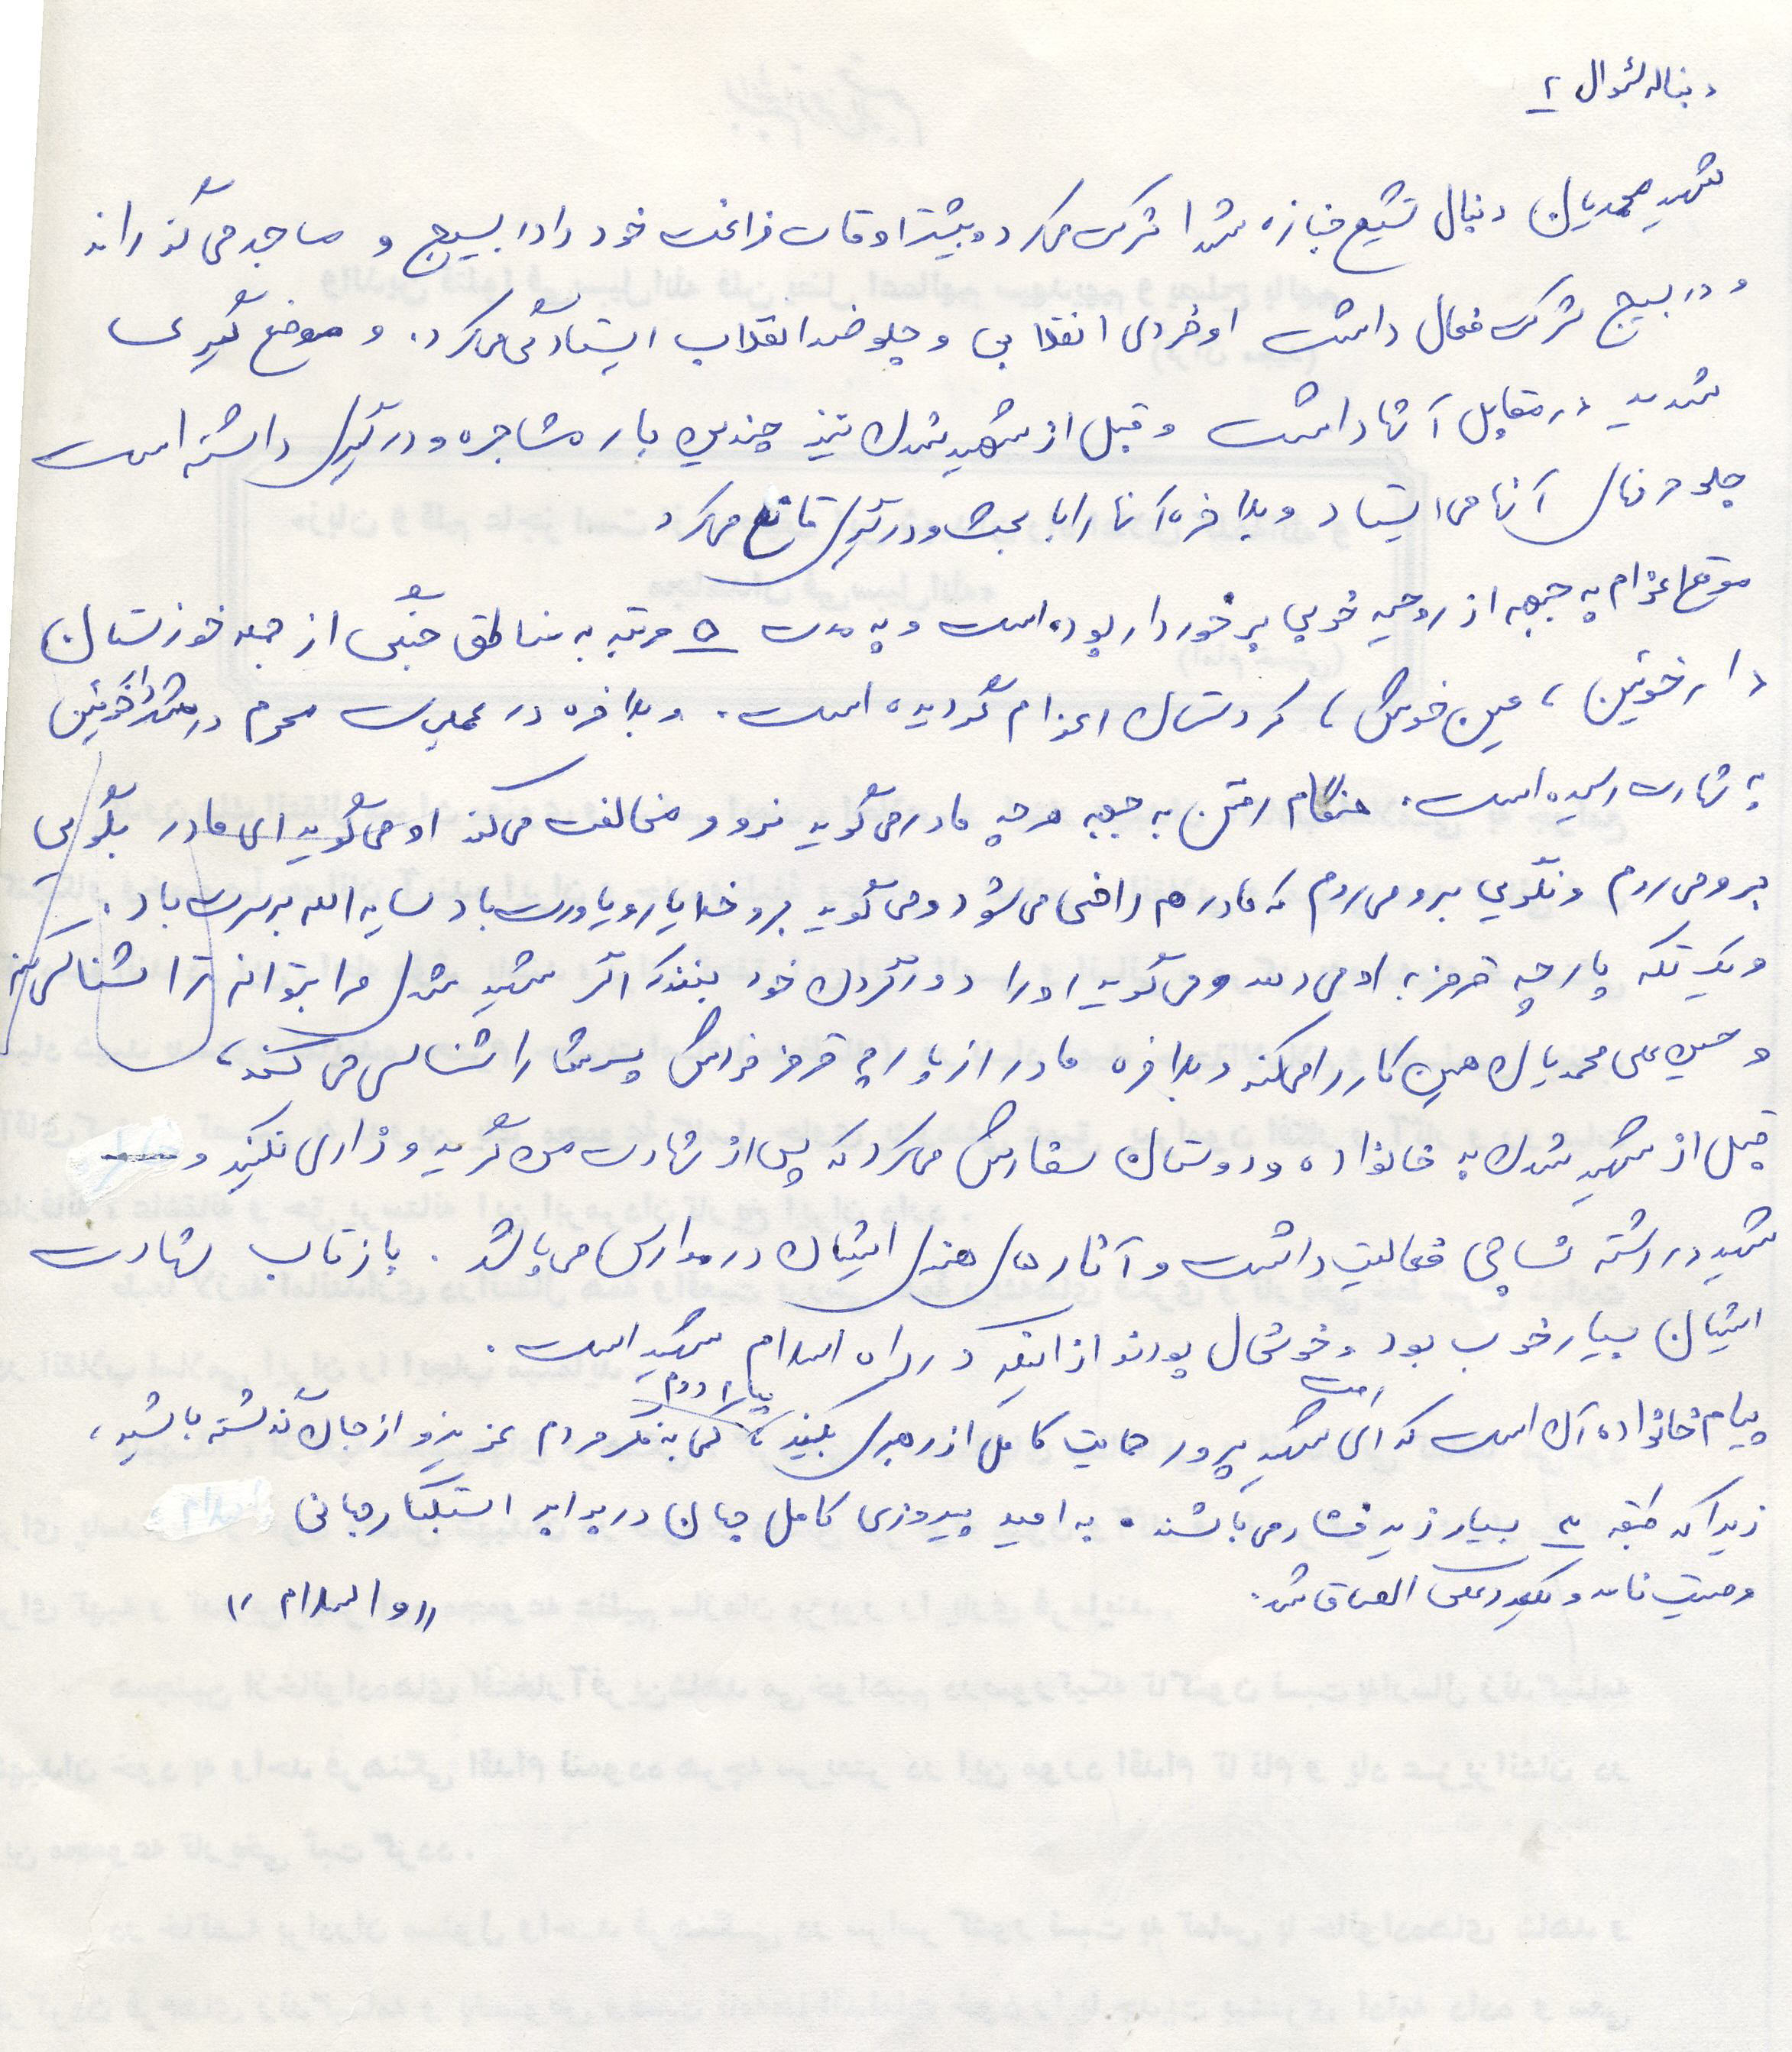 دنباله سئوال ۲
شهید محمدیان دنبال تشیع جنازه شهدا شرکت میکرد و بیشتر اوقات فراغت خود را در بسیج و مساجد می گذراند
و در بسیج شرکت فعال داشت او فردی انقلابی و جلو ضد انقلاب ایستادگی می کرد. و موضع گیری
شدید در مقابل آنها داشت و قبل از شهید شدن نیز چندین بار مشاجره و درگیری داشته است
جلو آنها می ایستاد و بلاخره آنها را با بحث و درگیری قانع میکرد
موقع اعزام به جبهه از روحیه خوبی برخوردار بوده است و به مدت ۵ مرتبه به مناطق جنگی از جمله خوزستان
دارخوئین ، عین خوش ، کردستان اعزام گردیده است. و بلاخره در عملیات محرم در
به شهادت رسیده است. هنگام رفتن به جبهه هرچه مادر می گوید نرو و مخالفت می کند او می گوید ای مادر بگویی
برو می روم و نگویی برو می روم که مادر هم راضی می شود و می گوید برو خدا یار و یاورت باد سایه الله برسرت باد .
و یک تکه پارچه قرمز به او می دهد و می گوید او را دور گردن خود ببند که اگر شهید شدی مرا بتوانم ترا شناسی کنم
و حسین علی محمدیان همین کار را میکند و بلاخره مادر از پارچه قرمز فرزندش را شناسی می کنند ،
قبل از شهید شدن به خانواده و دوستان سفارش می کرد که پس از شهادت من گریه و زاری نکنید و
شهید در رشته نساجی فعالیت داشت و آثار های هنری ایشان در مدارس می باشد . بازتاب شهادت
ایشان بسیار خوب بود و خوشحال بودند از اینکه در راه اسلام شهید است .
پیام خانواده آن است که امت شهید پرور حمایت کامل از رهبری بکنید ، کمی به فکر مردم عزیز و از جان گذشته باشید ،
زیرا که طبقه ۳ بسیار زیر فشار می باشند . به امید پیروزی کامل جهان در برابر استکبار جهانی
وصیت نامه و عکس الصاق شد. «والسلام»